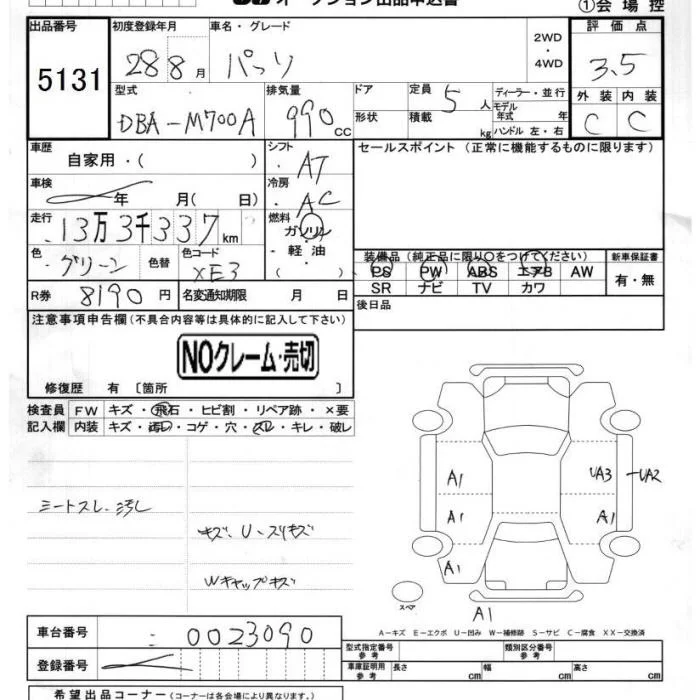 オークション出品申込書
①会場控
出品番号 初度登録年月 車名・グレード 2WD 評価点
5131 28 8月 パッソ ・ 3.5
4WD
型式 排気量 ドア 定員 5人 ディーラー・並行 外装 内装
DBA-M700A 990cc 形状 積載 kg モデル年式 年 C C
ハンドル 左・右
車歴 シフト セールスポイント(正常に機能するものに限ります)
自家用・( ) ・AT
車検 冷房
年 月(日) ・AC
走行 燃料
・13万3千337km ガソリン
色 色替 色コード ・軽油 装備品(純正品に限り○をつけてください) 新車保証書
・グリーン XE3 ( ) PS PW ABS エアB AW 有・無
R券 8190円 名変通知期限 月 日 SR ナビ TV カワ
注意事項申告欄(不具合内容等は具体的に記入して下さい) 後日品
NOクレーム・売切
修復歴 有〔箇所 〕
検査員 FW キズ・飛石・ヒビ割・リペア跡・×要
記入欄 内装 キズ・汚レ・コゲ・穴・スレ・キレ・破レ
A1 UA3 -UA2
シートスレ・汚レ
A1 A1
キズ、U・スリキズ
A1
Wキャップキズ
スペア
A1
A-キズ E-エクボ U-凹み W-補修跡 S-サビ C-腐食 XX-交換済
車台番号 0023090
型式指定番号 参考 類別区分番号 参考
登録番号 車庫証明用 参考 長さ cm 幅 cm 高さ cm
希望出品コーナー(コーナーは各会場により異なります。)